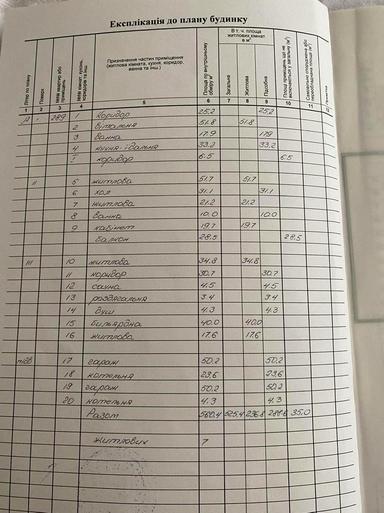 Експлікація до плану будинку
План по плану
Поверх
Призначення частин приміщення
(житлова кімната, кухня, коридор,
ванна та інш.)
Площа по внутрішньому обміру м²
В т. ч. площа
житлових кімнат
в м²
Загальна
Житлова
Підсобна
1 2 3 4 5 6 7 8 9 10 11
289 1 коридор 25.2 25.2
2 вітальня 51.8 51.8
3 ванна 17.9 17.9
4 кухня-їдальня 33.2 33.2
I коридор 6.5 6.5
II 5 житлова 51.7 51.7
6 хол 31.1 31.1
7 житлова 21.2 21.2
8 ванна 10.0 10.0
9 кабінет 19.7 19.7
балкон 28.5 28.5
III 10 житлова 34.8 34.8
11 коридор 30.7 30.7
12 сауна 4.5 4.5
13 роздягальня 3.4 3.4
14 душ 4.3 4.3
15 більярдна 40.0 40.0
16 житлова 17.6 17.6
підв 17 гараж 50.2 50.2
18 котельня 23.6 23.6
19 гараж 50.2 50.2
20 котельня 4.3 4.3
Разом 560.4 525.4 236.8 288.6 35.0
житлових 7